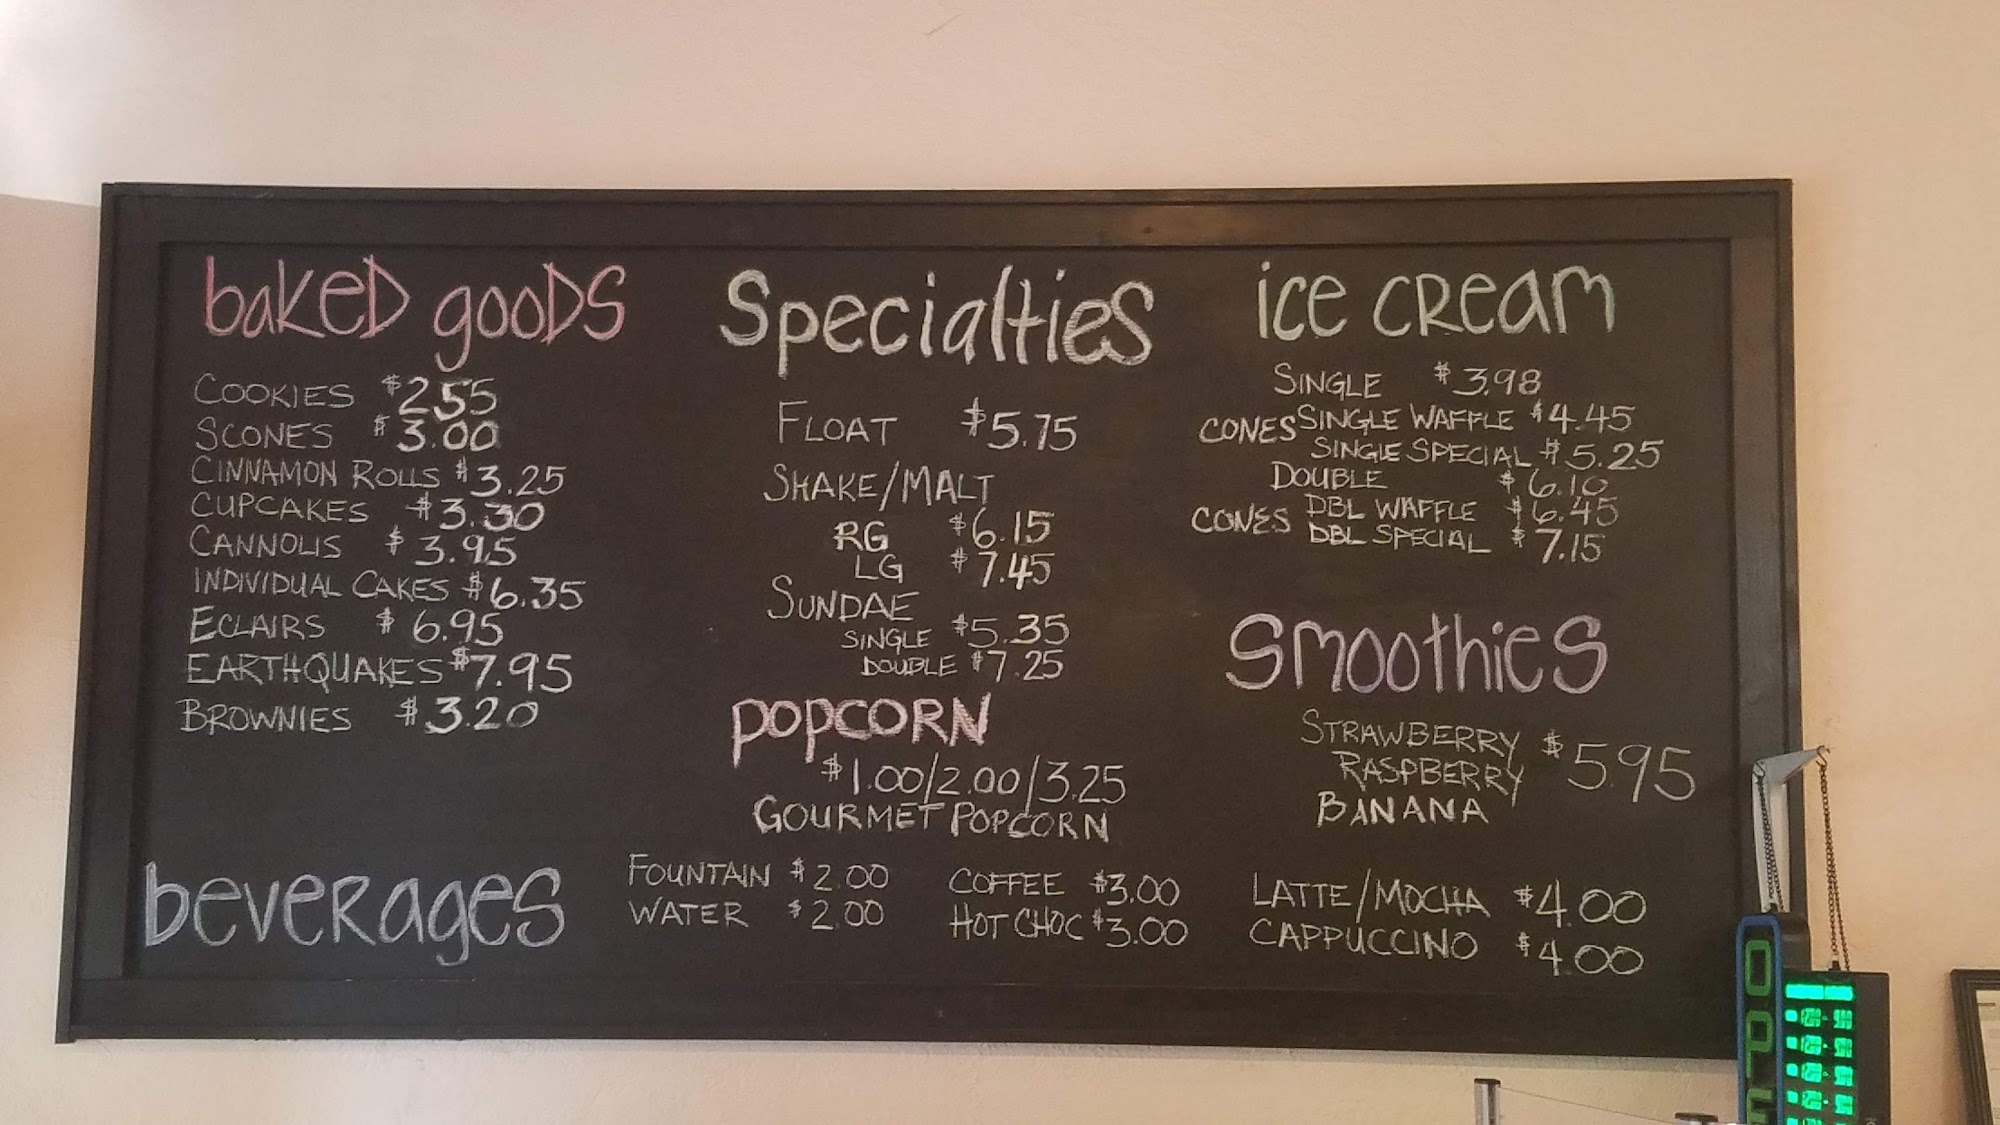 baked goods
COOKIES $2.55
SCONES $3.00
CINNAMON ROLLS $3.25
CUPCAKES $3.30
CANNOLIS $3.95
INDIVIDUAL CAKES $6.35
ECLAIRS $6.95
EARTHQUAKES $7.95
BROWNIES $3.20
Specialties
FLOAT $5.75
SHAKE/MALT
RG $6.15
LG $7.45
SUNDAE
SINGLE $5.35
DOUBLE $7.25
POPCORN
$1.00/2.00/3.25
GOURMET POPCORN
ice cream
SINGLE $3.98
CONES SINGLE WAFFLE $4.45
SINGLE SPECIAL $5.25
DOUBLE $6.10
CONES DBL WAFFLE $6.45
DBL SPECIAL $7.15
smoothies
STRAWBERRY $5.95
RASPBERRY
BANANA
beverages
FOUNTAIN $2.00
WATER $2.00
COFFEE $3.00
HOT CHOC $3.00
LATTE/MOCHA $4.00
CAPPUCCINO $4.00
OPE